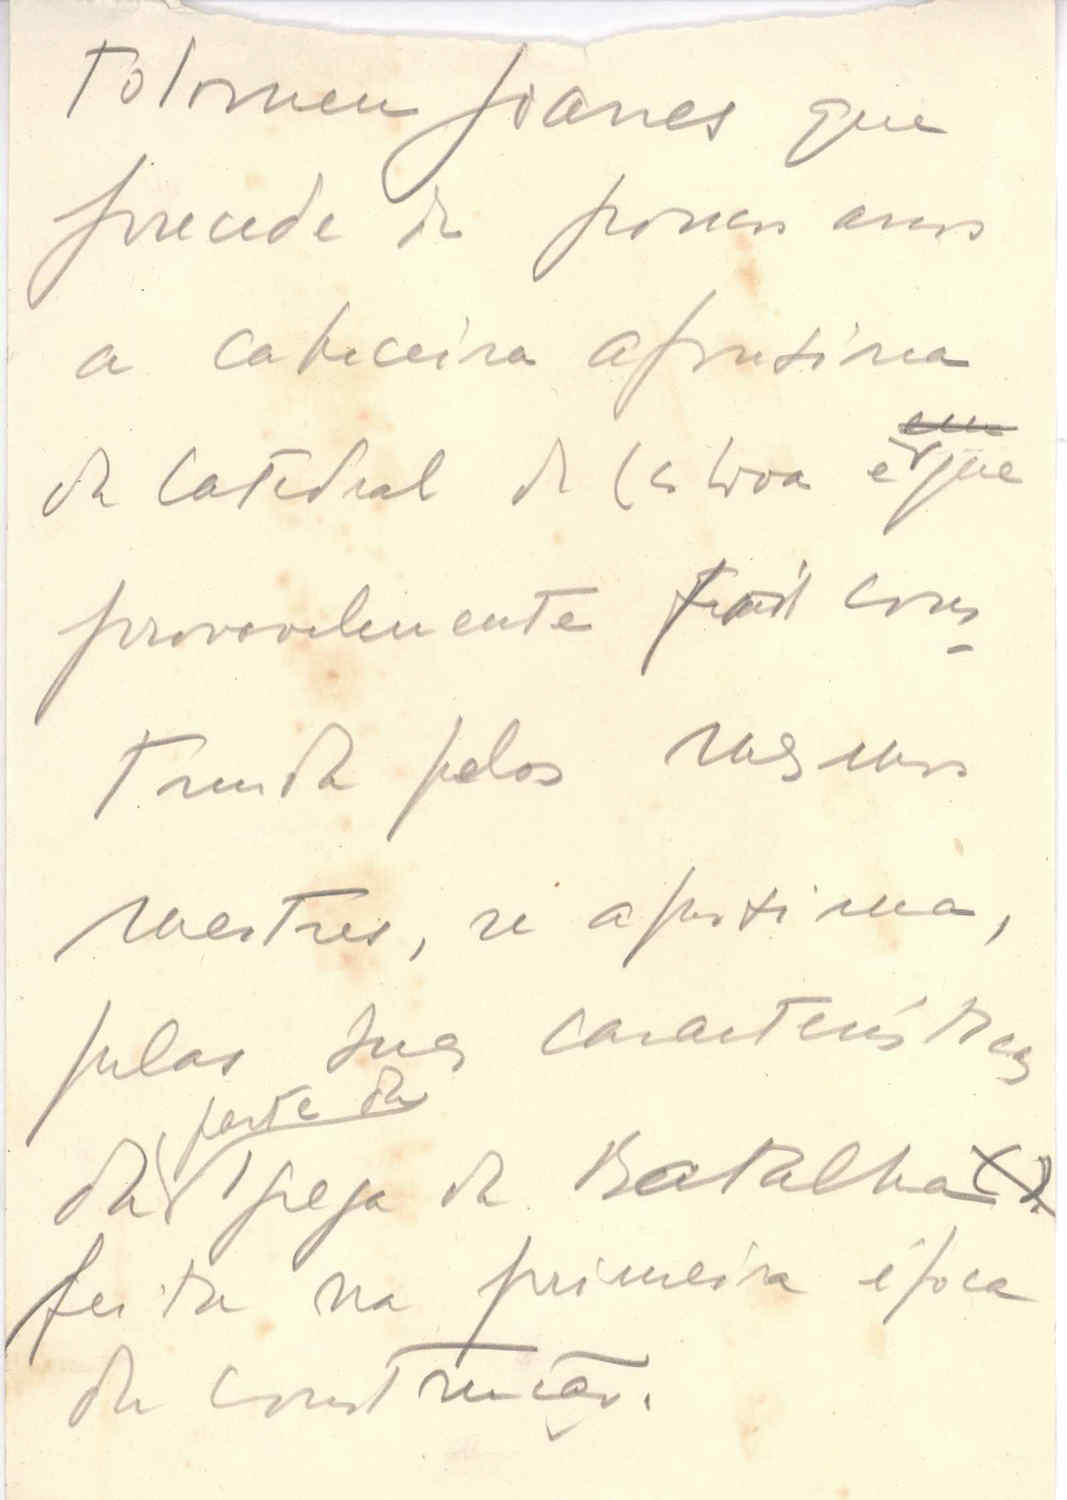 tolomeu Joanes que
precede de poucos anos
a cabeceira aproxima
da Catedral de Lisboa e que
provavelmente foi cons-
truida pelos mesmos
mestres, se aproxima,
pelas suas características
parte da
da Igreja da Batalha
feita na primeira época
da construção.